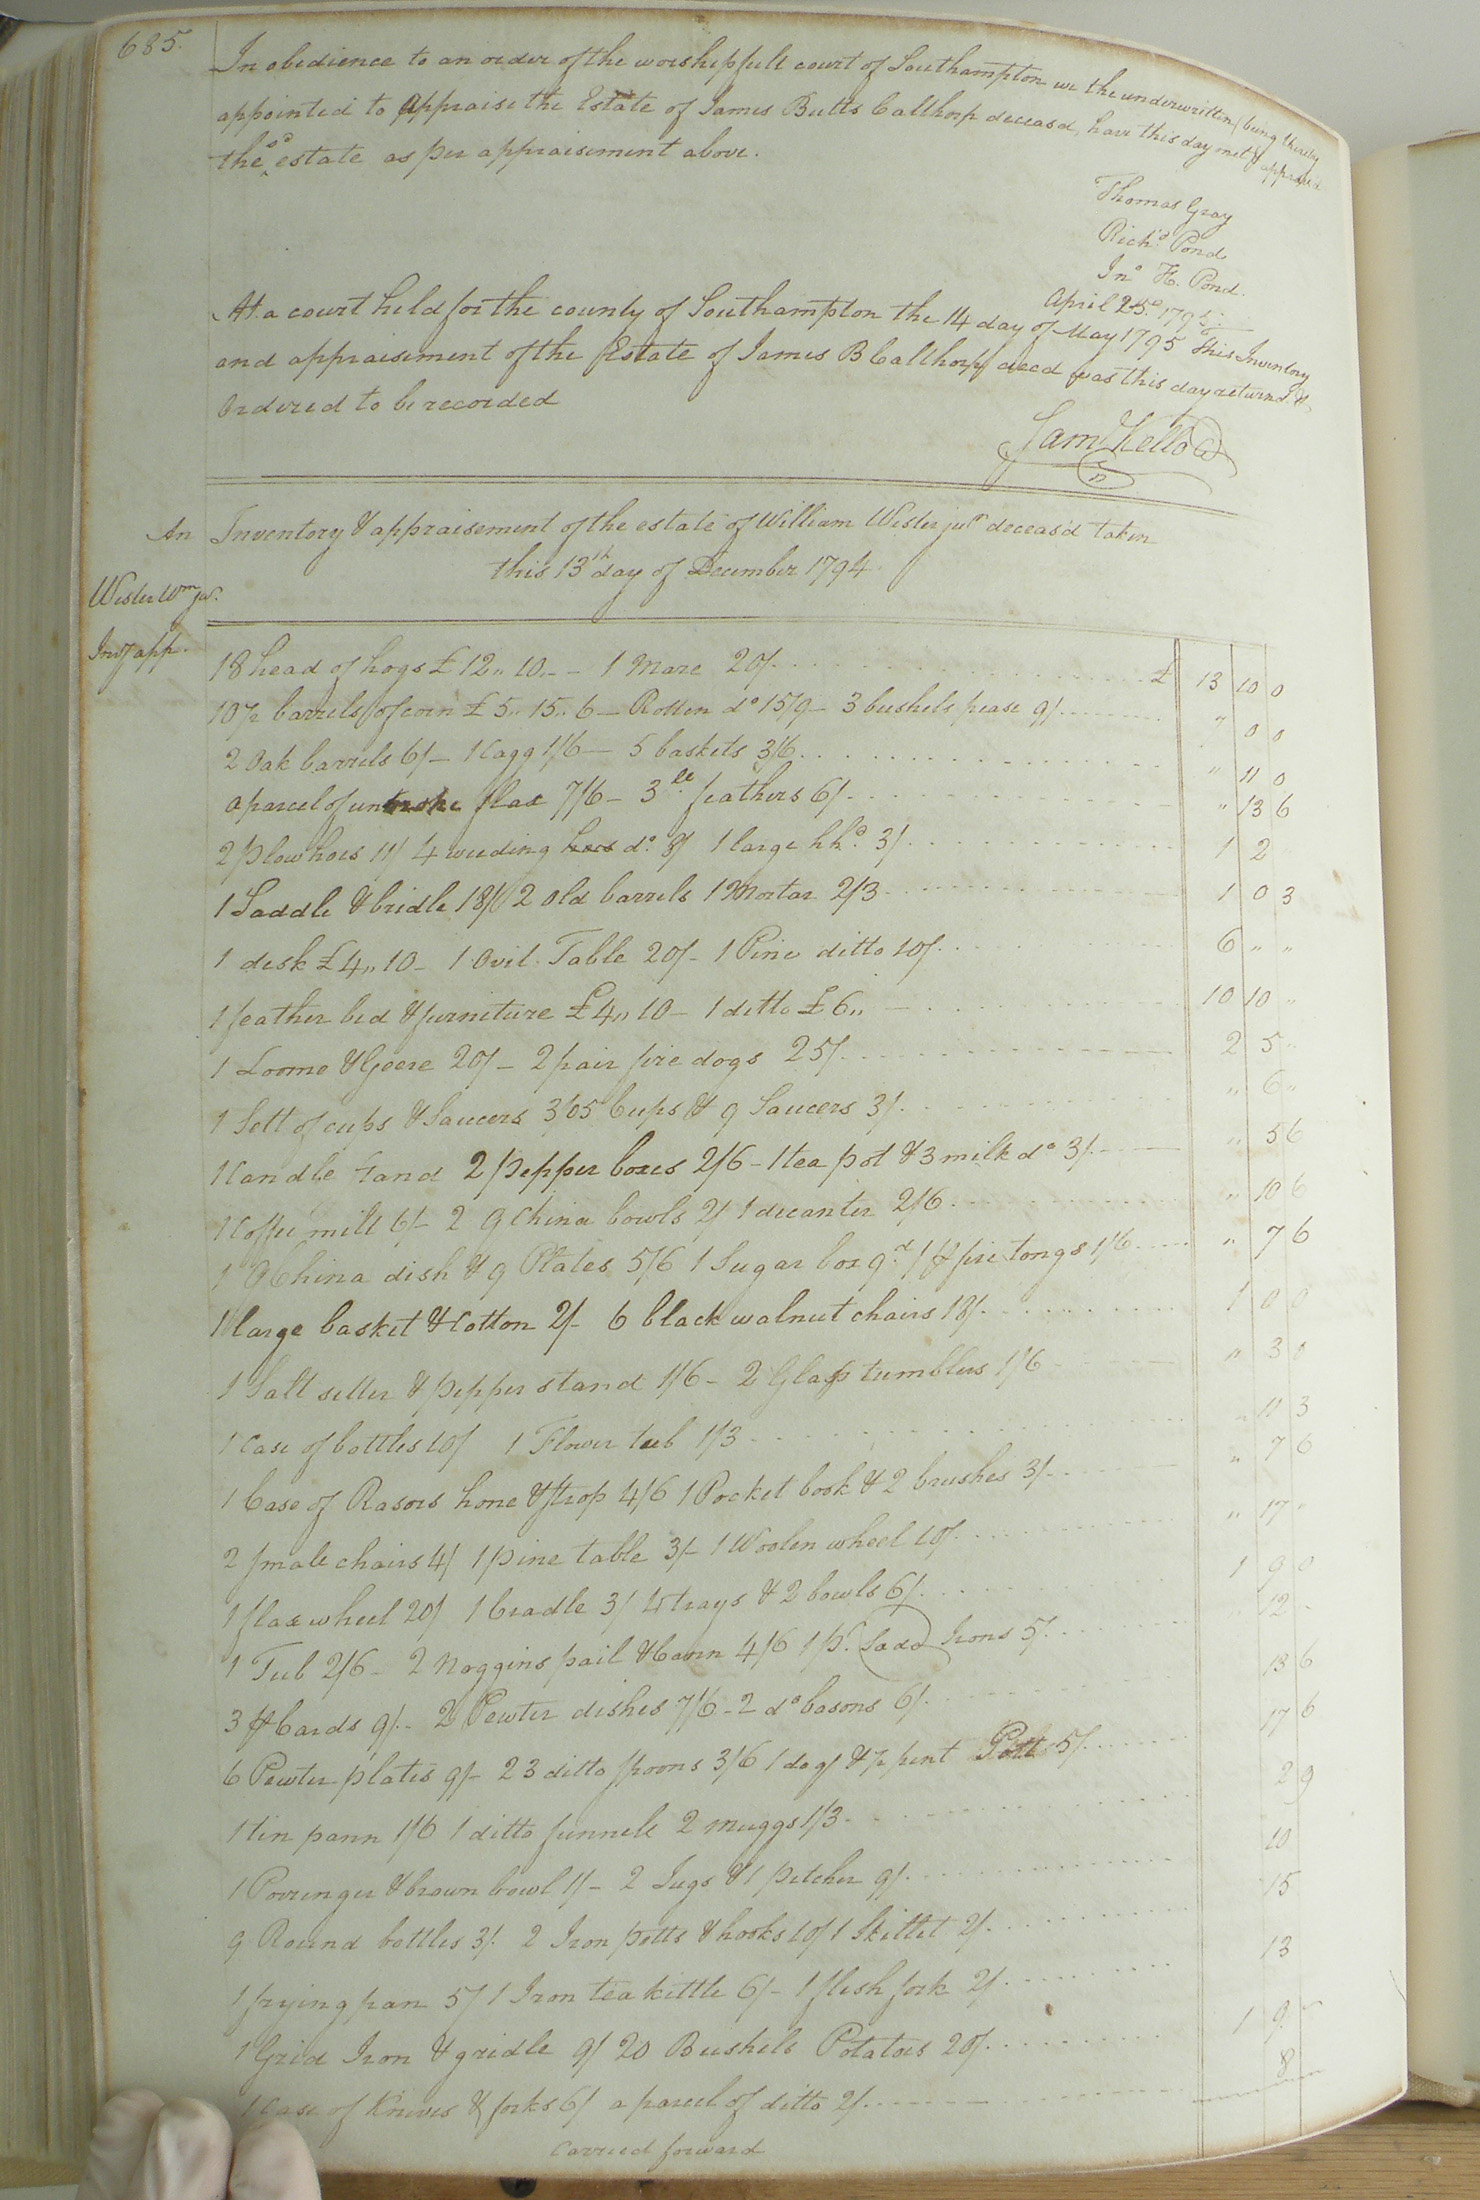 685.
In obedience to an order of the worshipfull court of Southampton we the underwritten (being thereby
appointed to appraise the Estate of James Butts Calthorp deceasd, have this day met & appraisd
the sd estate as per appraisement above.
Thomas Gray
Richd Pond
Jno H. Pond.
April 25. 1795.
At a court held for the county of Southampton the 14 day of May 1795 This Inventory
and appraisement of the Estate of James B Calthorp decd was this day returnd. &
Ordered to be recorded
Saml Kello
An Inventory & appraisement of the estate of William Wester jur deceasd taken
this 13th day of December 1794
Wester Wm jur.
Invy app.
18 head of hogs £12,,10,,- - 1 Mare 20/. £ 13 10 0
10½ barrels of corn £5,,15,,6 - Rotten do 15/9 - 3 bushels pease 9/. " 0 0
2 Oak barrels 6/- 1 Cagg 1/6 - 5 baskets 3/6. " 11 0
a parcel of unbroke flax 7/6 - 3 lb feathers 6/. " 13 6
2 plow hoes 11/ 4 weeding hoes do. 8/ 1 large hhd. 3/. 1 2
1 Saddle & bridle 18/ 2 old barrels 1 Mortar 2/3 1 0 3
1 desk £4,,10 - 1 Ovil Table 20/- 1 Pine ditto 10/. 6 " "
1 feather bed & furniture £4,,10 - 1 ditto £6,, - 10 10 "
1 Loome & Geere 20/- 2 pair fire dogs 25/. 2 5 "
1 Sett of cups & Saucers 3/ 5 Cups & 9 Saucers 3/. " 6 "
1 Candle stand 2 Pepper boxes 2/6 - 1 tea pot & 3 milk do 3/. " 5 6
1 Coffee mill 6/- 2 China bowls 2/ 1 decanter 2/6 " 10 6
1 China dish & 9 Plates 5/6 1 Sugar box 9d / & fire tongs 1/6 " 7 6
1 large basket & Cotton 2/- 6 black walnut chairs 18/. 1 0 0
1 Salt seller & pepper stand 1/6 - 2 Glass tumblers 1/6 " 3 0
1 Case of bottles 10/ 1 Flower tub 1/3 " 11 3
1 Case of Rasors hone & strop 4/6 1 Pocket book & 2 brushes 3/. " 7 6
2 smale chairs 4/ 1 pine table 3/- 1 Woolen wheel 10/. " 17 "
1 flax wheel 20/ 1 Cradle 3/ 4 trays & 2 bowls 6/. 1 9 0
1 Tub 2/6 - 2 Noggins pail & Cann 4/6 1 pr. Sadd Irons 5/. 12 -
3 Cards 9/.- 2 Pewter dishes 7/6 - 2 do basons 6/. 13 6
6 Pewter plates 9/- 23 ditto spoons 3/6 1 do & ½ pint Pott 5/. 17 6
1 tin pann 1/6 1 ditto funnell 2 muggs 1/3. 2 9
1 Porringer & brown bowl 1/- 2 Jugs & 1 pitcher 9/. 10
9 Round bottles 3/. 2 Iron potts & hooks 10/ 1 Skillet 2/. 15
1 frying pan 5/ 1 Iron tea kettle 6/- 1 flesh fork 2/. 13
1 Grid Iron & gridle 9/ 20 Bushels Potatoes 20/. 1 9 -
1 Case of Knives & forks 6/ a parcel of ditto 2/. 8
Carried forward